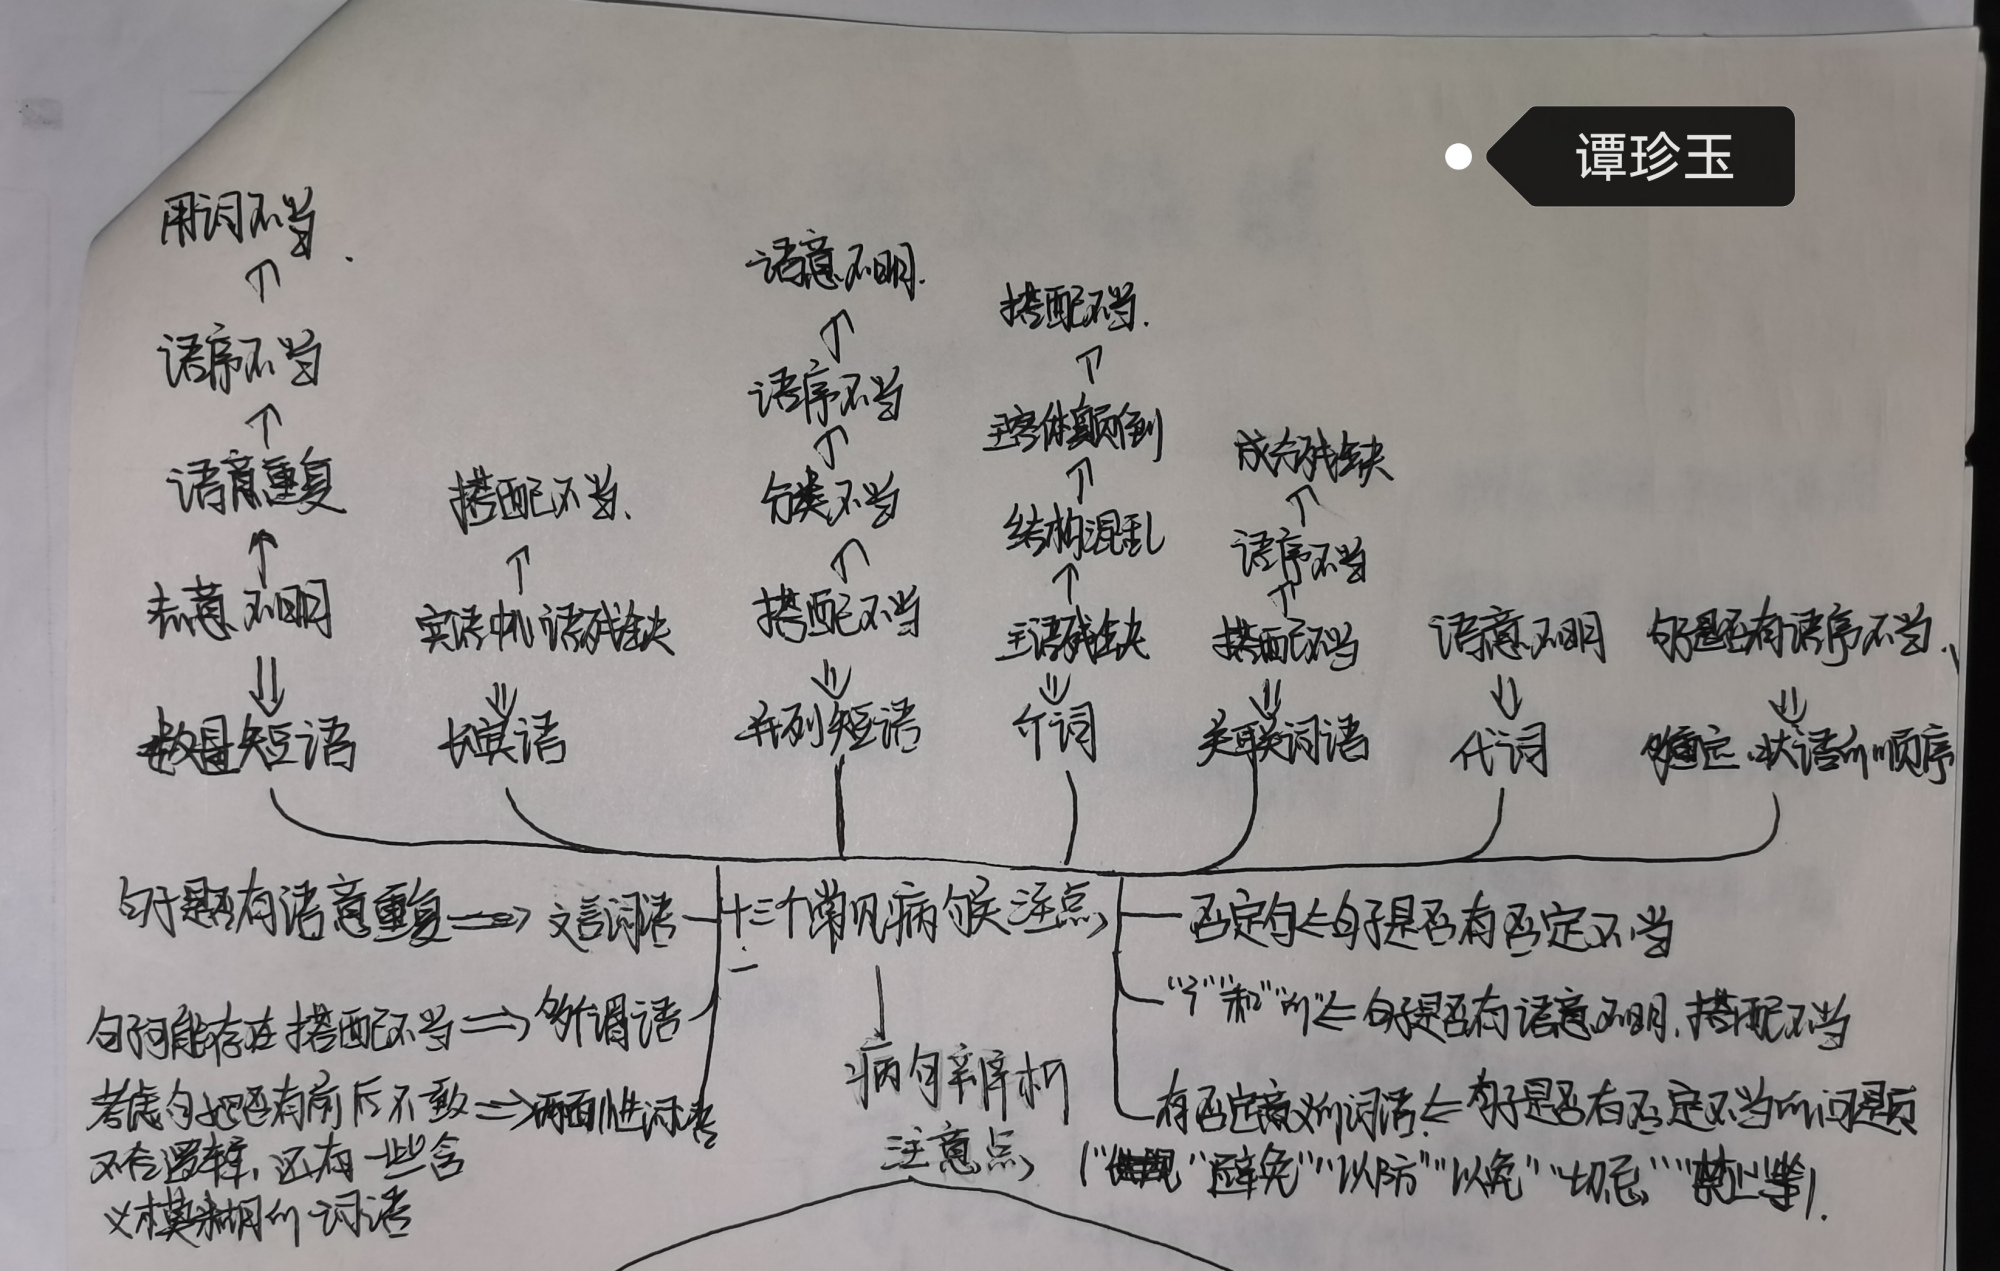 谭珍玉
用词不当.
语序不当
语意重复
表意不明
数量短语
搭配不当.
宾语中心语残缺
长宾语
语意不明.
语序不当
分类不当
搭配不当
并列短语
搭配不当.
主客体颠倒
结构混乱
主语残缺
介词
成分残缺
语序不当
搭配不当
关联词语
语意不明
代词
句子是否有语序不当.
多重定.状语的顺序
十三个常见病句关注点
句子是否有语意重复 文言词语
句子可能存在搭配不当 多个谓语
考虑句子是否有前后不一致 两面性词语
不合逻辑,还有一些含
义模糊的词语
否定句 句子是否有否定不当
和"的" 句子是否有语意不明.搭配不当
有否定意义的词语 句子是否有否定不当的问题
("避免""以防""以免""切忌""禁止等).
病句辨析
注意点